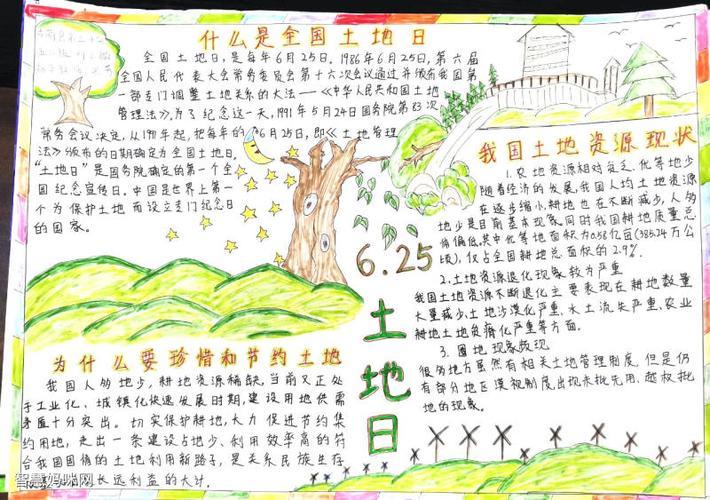 什么是全国土地日
全国土地日,是每年6月25日。1986年6月25日,第六届
全国人民代表大会常务委员会第十六次会议通过并颁布我国第
一部专门调整土地关系的大法——《中华人民共和国土地
管理法》,为了纪念这一天,1991年5月24日国务院第83次
常务会议决定,从1991年起,把每年的6月25日,即《土地管理
法》颁布的日期确定为全国土地日。
“土地日”是国务院确定的第一个全
国纪念宣传日。中国是世界上第一
个为保护土地而设立专门纪念日
的国家。
我国土地资源现状
1.农地资源相对贫乏,优等地少
随着经济的发展,我国人均土地资源
在逐步缩小,耕地也在不断减少,人多
地少是目前基本现象,同时我国耕地质量总
体偏低。其中优等地面积为0.58亿亩(385.24万公
顷),仅占全国耕地总面积的2.9%。
2.土地资源退化现象较为严重
我国土地资源不断退化主要表现在耕地数量
大量减少,土地沙漠化严重、水土流失严重、农业
耕地土地贫瘠化严重等方面。
3.圈地现象频现
很多地方虽然有相关土地管理制度,但是仍
有部分地区漠视制度出现未批先用、越权批
地的现象。
6.25
土地日
为什么要珍惜和节约土地
我国人多地少,耕地资源稀缺,当前又正处
于工业化、城镇化快速发展时期,建设用地供需
矛盾十分突出。切实保护耕地,大力促进节约集
约用地,走出一条建设占地少、利用效率高的符
合我国国情的土地利用新路子,是关系民族生存
长远利益的大计。
智慧妈咪网